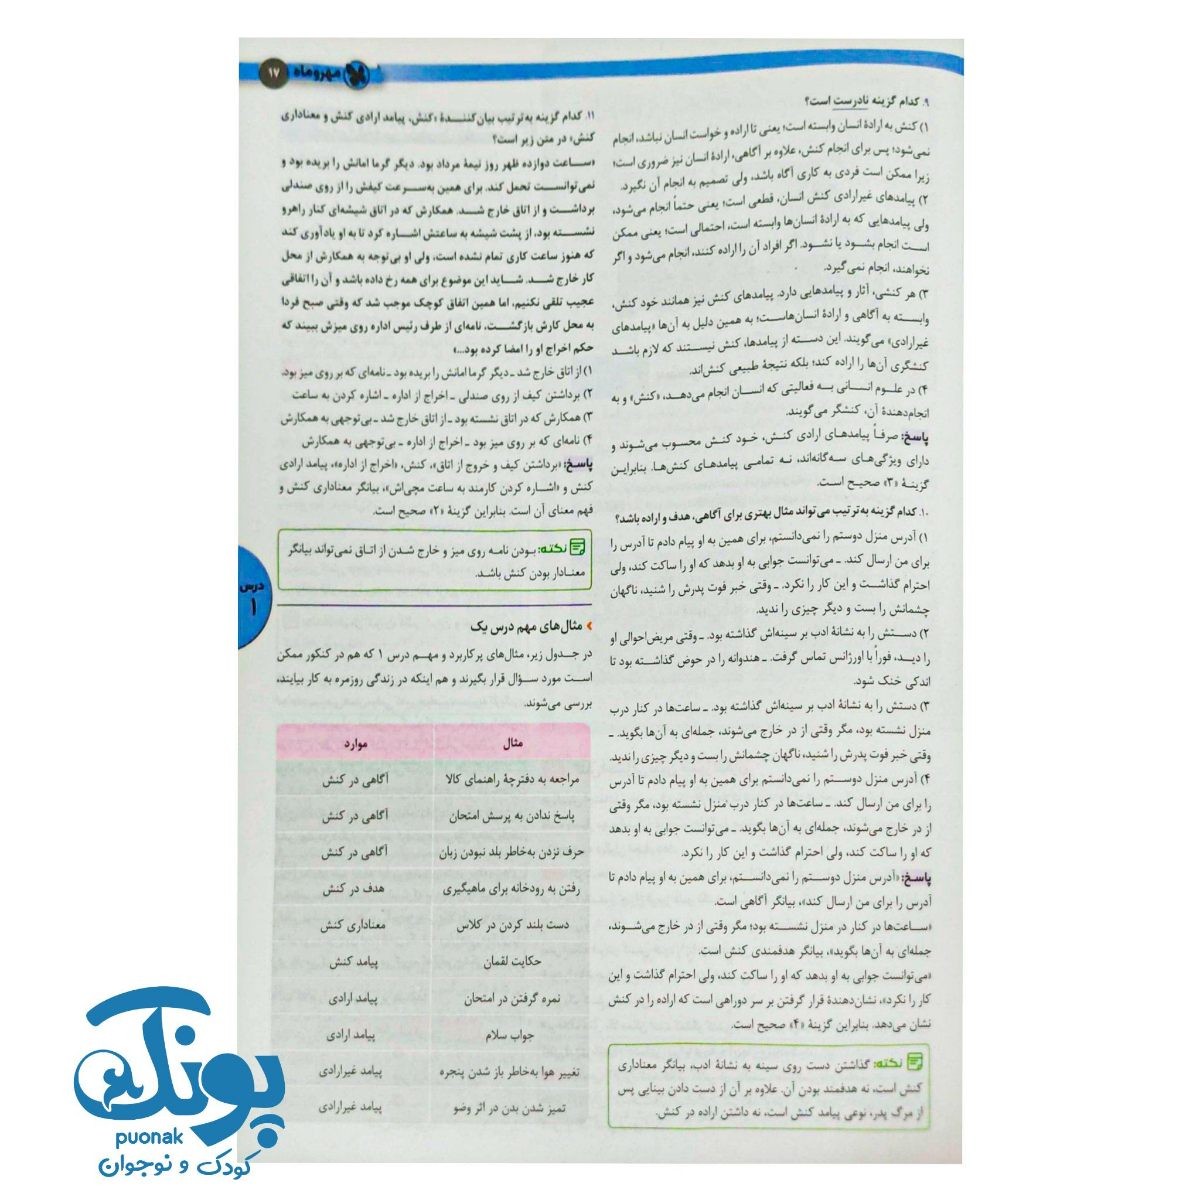 مهروماه ۱۷
۹. کدام گزینه نادرست است؟
۱) کنش به ارادهٔ انسان وابسته است؛ یعنی تا اراده و خواست انسان نباشد، انجام
نمی‌شود؛ پس برای انجام کنش، علاوه بر آگاهی، ارادهٔ انسان نیز ضروری است؛
زیرا ممکن است فردی به کاری آگاه باشد، ولی تصمیم به انجام آن نگیرد.
۲) پیامدهای غیرارادی کنش انسان، قطعی است؛ یعنی حتماً انجام می‌شود،
ولی پیامدهایی که به ارادهٔ انسان‌ها وابسته است، احتمالی است؛ یعنی ممکن
است انجام بشود یا نشود. اگر افراد آن را اراده کنند، انجام می‌شود و اگر
نخواهند، انجام نمی‌گیرد.
۳) هر کنشی، آثار و پیامدهایی دارد. پیامدهای کنش نیز همانند خود کنش،
وابسته به آگاهی و ارادهٔ انسان‌هاست؛ به همین دلیل به آن‌ها «پیامدهای
غیرارادی» می‌گویند. این دسته از پیامدها، کنش نیستند که لازم باشد
کنشگری آن‌ها را اراده کند؛ بلکه نتیجهٔ طبیعی کنش‌اند.
۴) در علوم انسانی به فعالیتی که انسان انجام می‌دهد، «کنش» و به
انجام‌دهندهٔ آن، کنشگر می‌گویند.
پاسخ: صرفاً پیامدهای ارادی کنش، خود کنش محسوب می‌شوند و
دارای ویژگی‌های سه‌گانه‌اند، نه تمامی پیامدهای کنش‌ها. بنابراین
گزینهٔ «۳» صحیح است.
۱۰. کدام گزینه به‌ترتیب می‌تواند مثال بهتری برای آگاهی، هدف و اراده باشد؟
۱) آدرس منزل دوستم را نمی‌دانستم، برای همین به او پیام دادم تا آدرس را
برای من ارسال کند. ـ می‌توانست جوابی به او بدهد که او را ساکت کند، ولی
احترام گذاشت و این کار را نکرد. ـ وقتی خبر فوت پدرش را شنید، ناگهان
چشمانش را بست و دیگر چیزی را ندید.
۲) دستش را به نشانهٔ ادب بر سینه‌اش گذاشته بود. ـ وقتی مریض‌احوالی او
را دید، فوراً با اورژانس تماس گرفت. ـ هندوانه را در حوض گذاشته بود تا
اندکی خنک شود.
۳) دستش را به نشانهٔ ادب بر سینه‌اش گذاشته بود. ـ ساعت‌ها در کنار درب
منزل نشسته بود، مگر وقتی از در خارج می‌شوند، جمله‌ای به آن‌ها بگوید. ـ
وقتی خبر فوت پدرش را شنید، ناگهان چشمانش را بست و دیگر چیزی را ندید.
۴) آدرس منزل دوستم را نمی‌دانستم برای همین به او پیام دادم تا آدرس
را برای من ارسال کند. ـ ساعت‌ها در کنار درب منزل نشسته بود، مگر وقتی
از در خارج می‌شوند، جمله‌ای به آن‌ها بگوید. ـ می‌توانست جوابی به او بدهد
که او را ساکت کند، ولی احترام گذاشت و این کار را نکرد.
پاسخ: «آدرس منزل دوستم را نمی‌دانستم، برای همین به او پیام دادم تا
آدرس را برای من ارسال کند»، بیانگر آگاهی است.
«ساعت‌ها در کنار در منزل نشسته بود؛ مگر وقتی از در خارج می‌شوند،
جمله‌ای به آن‌ها بگوید»، بیانگر هدفمندی کنش است.
«می‌توانست جوابی به او بدهد که او را ساکت کند، ولی احترام گذاشت و این
کار را نکرد»، نشان‌دهندهٔ قرار گرفتن بر سر دوراهی است که اراده را در کنش
نشان می‌دهد. بنابراین گزینهٔ «۴» صحیح است.
نکته: گذاشتن دست روی سینه به نشانهٔ ادب، بیانگر معناداری
کنش است، نه هدفمند بودن آن. علاوه بر آن از دست دادن بینایی پس
از مرگ پدر، نوعی پیامد کنش است، نه داشتن اراده در کنش.
۱۱. کدام گزینه به‌ترتیب بیان‌کنندهٔ «کنش، پیامد ارادی کنش و معناداری
کنش» در متن زیر است؟
«ساعت دوازده ظهر روز نیمهٔ مرداد بود. دیگر گرما امانش را بریده بود و
نمی‌توانست تحمل کند. برای همین به‌سرعت کیفش را از روی صندلی
برداشت و از اتاق خارج شد. همکارش که در اتاق شیشه‌ای کنار راهرو
نشسته بود، از پشت شیشه به ساعتش اشاره کرد تا به او یادآوری کند
که هنوز ساعت کاری تمام نشده است، ولی او بی‌توجه به همکارش از محل
کار خارج شد. شاید این موضوع برای همه رخ داده باشد و آن را اتفاقی
عجیب تلقی نکنیم، اما همین اتفاق کوچک موجب شد که وقتی صبح فردا
به محل کارش بازگشت، نامه‌ای از طرف رئیس اداره روی میزش ببیند که
حکم اخراج او را امضا کرده بود...»
۱) از اتاق خارج شد ـ دیگر گرما امانش را بریده بود ـ نامه‌ای که بر روی میز بود.
۲) برداشتن کیف از روی صندلی ـ اخراج از اداره ـ اشاره کردن به ساعت
۳) همکارش که در اتاق نشسته بود ـ از اتاق خارج شد ـ بی‌توجهی به همکارش
۴) نامه‌ای که بر روی میز بود ـ اخراج از اداره ـ بی‌توجهی به همکارش
پاسخ: «برداشتن کیف و خروج از اتاق»، کنش، «اخراج از اداره»، پیامد ارادی
کنش و «اشاره کردن کارمند به ساعت مچی‌اش»، بیانگر معناداری کنش و
فهم معنای آن است. بنابراین گزینهٔ «۲» صحیح است.
نکته: بودن نامه روی میز و خارج شدن از اتاق نمی‌تواند بیانگر
معنادار بودن کنش باشد.
مثال‌های مهم درس یک
در جدول زیر، مثال‌های پرکاربرد و مهم درس ۱ که هم در کنکور ممکن
است مورد سؤال قرار بگیرند و هم اینکه در زندگی روزمره به کار بیایند،
بررسی می‌شوند.
مثال موارد
مراجعه به دفترچهٔ راهنمای کالا آگاهی در کنش
پاسخ ندادن به پرسش امتحان آگاهی در کنش
حرف نزدن به‌خاطر بلد نبودن زبان آگاهی در کنش
رفتن به رودخانه برای ماهیگیری هدف در کنش
دست بلند کردن در کلاس معناداری کنش
حکایت لقمان پیامد کنش
نمره گرفتن در امتحان پیامد ارادی
جواب سلام پیامد ارادی
تغییر هوا به‌خاطر باز شدن پنجره پیامد غیرارادی
تمیز شدن بدن در اثر وضو پیامد غیرارادی
درس
۱
پونک
puonak
کودک و نوجوان